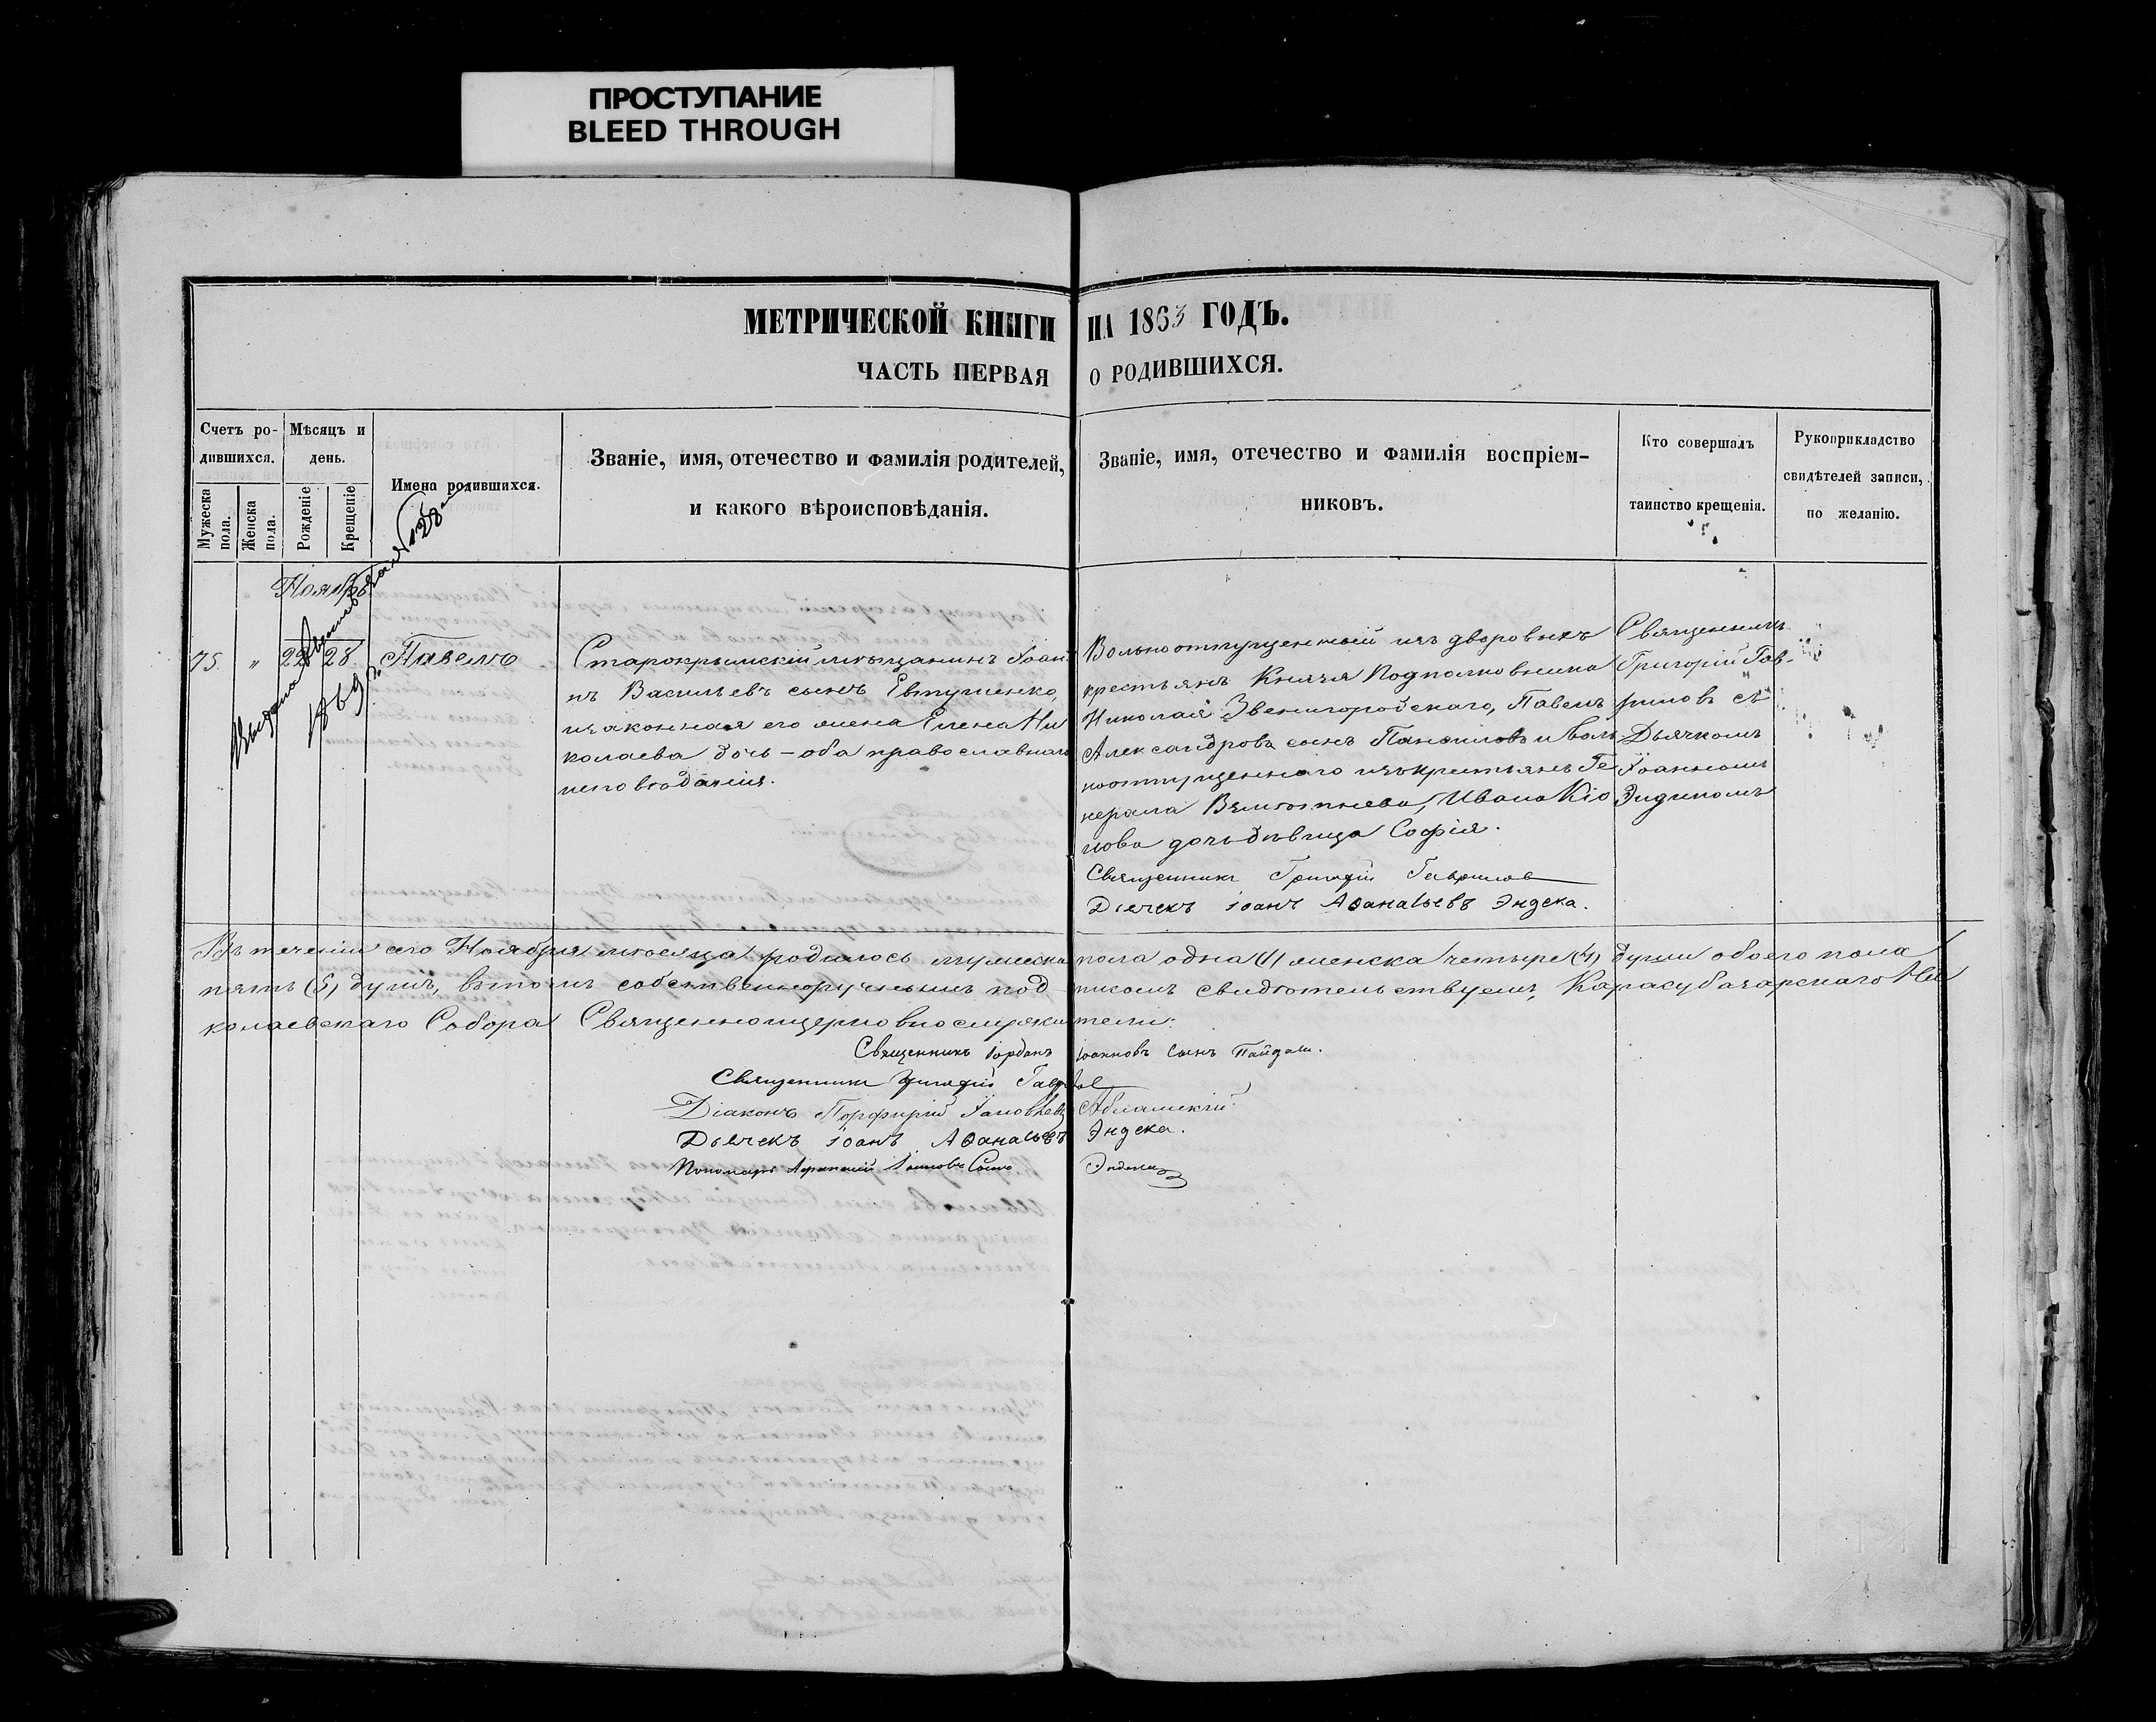 ПРОСТУПАНИЕ
BLEED THROUGH
МЕТРИЧЕСКОЙ КНИГИ НА 1863 ГОДЪ.
ЧАСТЬ ПЕРВАЯ О РОДИВШИХСЯ.
Счетъ ро-
дившихся.
Мужеска пола.
Женска пола.
Мѣсяцъ и
день.
Рожденіе
Крещеніе
Имена родившихся.
Званіе, имя, отечество и фамилія родителей,
и какого вѣроисповѣданія.
Званіе, имя, отечество и фамилія воспріем-
никовъ.
Кто совершалъ
таинство крещенія.
Рукоприкладство
свидѣтелей записи,
по желанію.
Ноябрь
75. " 22 28. Павелъ
1869 г.
Старокрымскій мѣщанинъ Іоан-
нъ Васильевъ сынъ Евтушенко,
и законная его жена Елена Ни
колаева дочь – оба православнаго
исповѣданія.
Вольноотпущенный изъ дворовыхъ
крестьянъ Князя Подполковника
Николая Звенигородскаго, Павелъ
Александровъ сынъ Панфиловъ и воль
ноотпущеннаго изъ крестьянъ Ге
нерала Ивана
дочь дѣвица Софія.
Священникъ Григорій Гавриловъ
Дьячекъ Іоанъ Аѳанасьевъ Эндека.
Священникъ
Григорій Гав-
риловъ съ
Дьячкомъ
Іоанномъ
Эндикомъ
Въ теченіи сего Ноября мѣсяца родилось мужеска пола одна (1) женска четыре (4) души обоего пола
пять (5) душъ, въ томъ собственноручнымъ под-писомъ свидѣтельствуемъ, Карасубазарскаго Ни
колаевскаго Собора Священноцерковнослужители:
Священникъ Іорданъ Іоанновъ сынъ
Священникъ Григорій Гавриловъ
Діаконъ Порфирій Яковлевъ
Дьячекъ Іоанъ Аѳанасьевъ Эндека.
Пономарь Аѳанасій Іоанновъ Сынъ Эндека